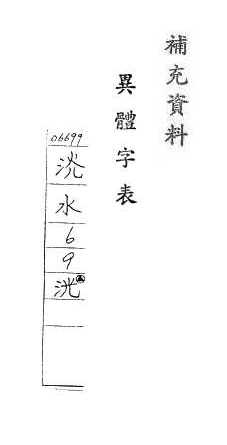 補充資料
異體字表
06699
水
6
9
洸